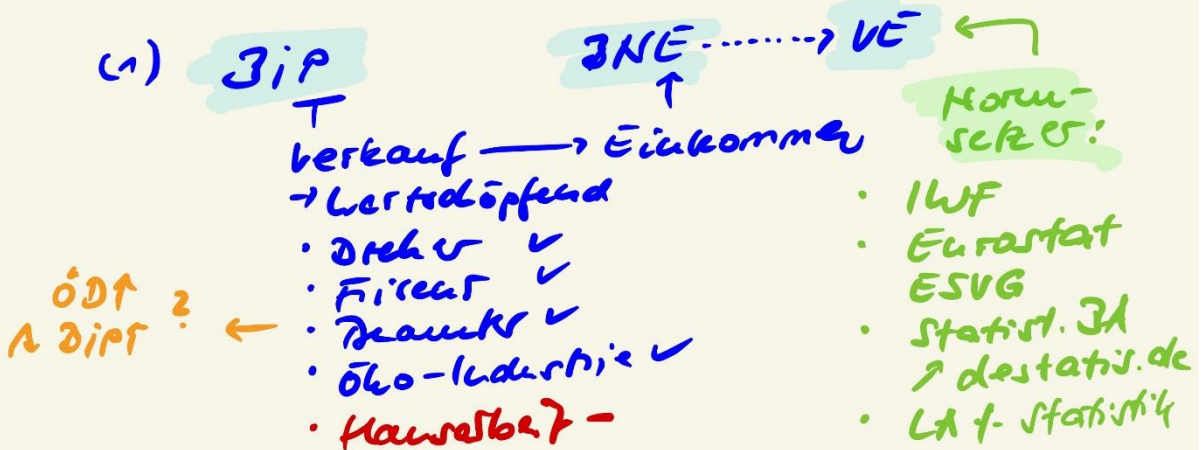 (1) BIP BNE ········> VE ←
Norm-
setzer:
Verkauf → Einkommen
→ Wertschöpfend
· Dreher ✓
· Friseur ✓
· Beamter ✓
· Öko-Industrie ✓
· Hausarbeit –
ÖD↑
BIP↑ ? ←
· IWF
· Eurostat
ESVG
· Statist. BA
↗ destatis.de
· LA f. Statistik